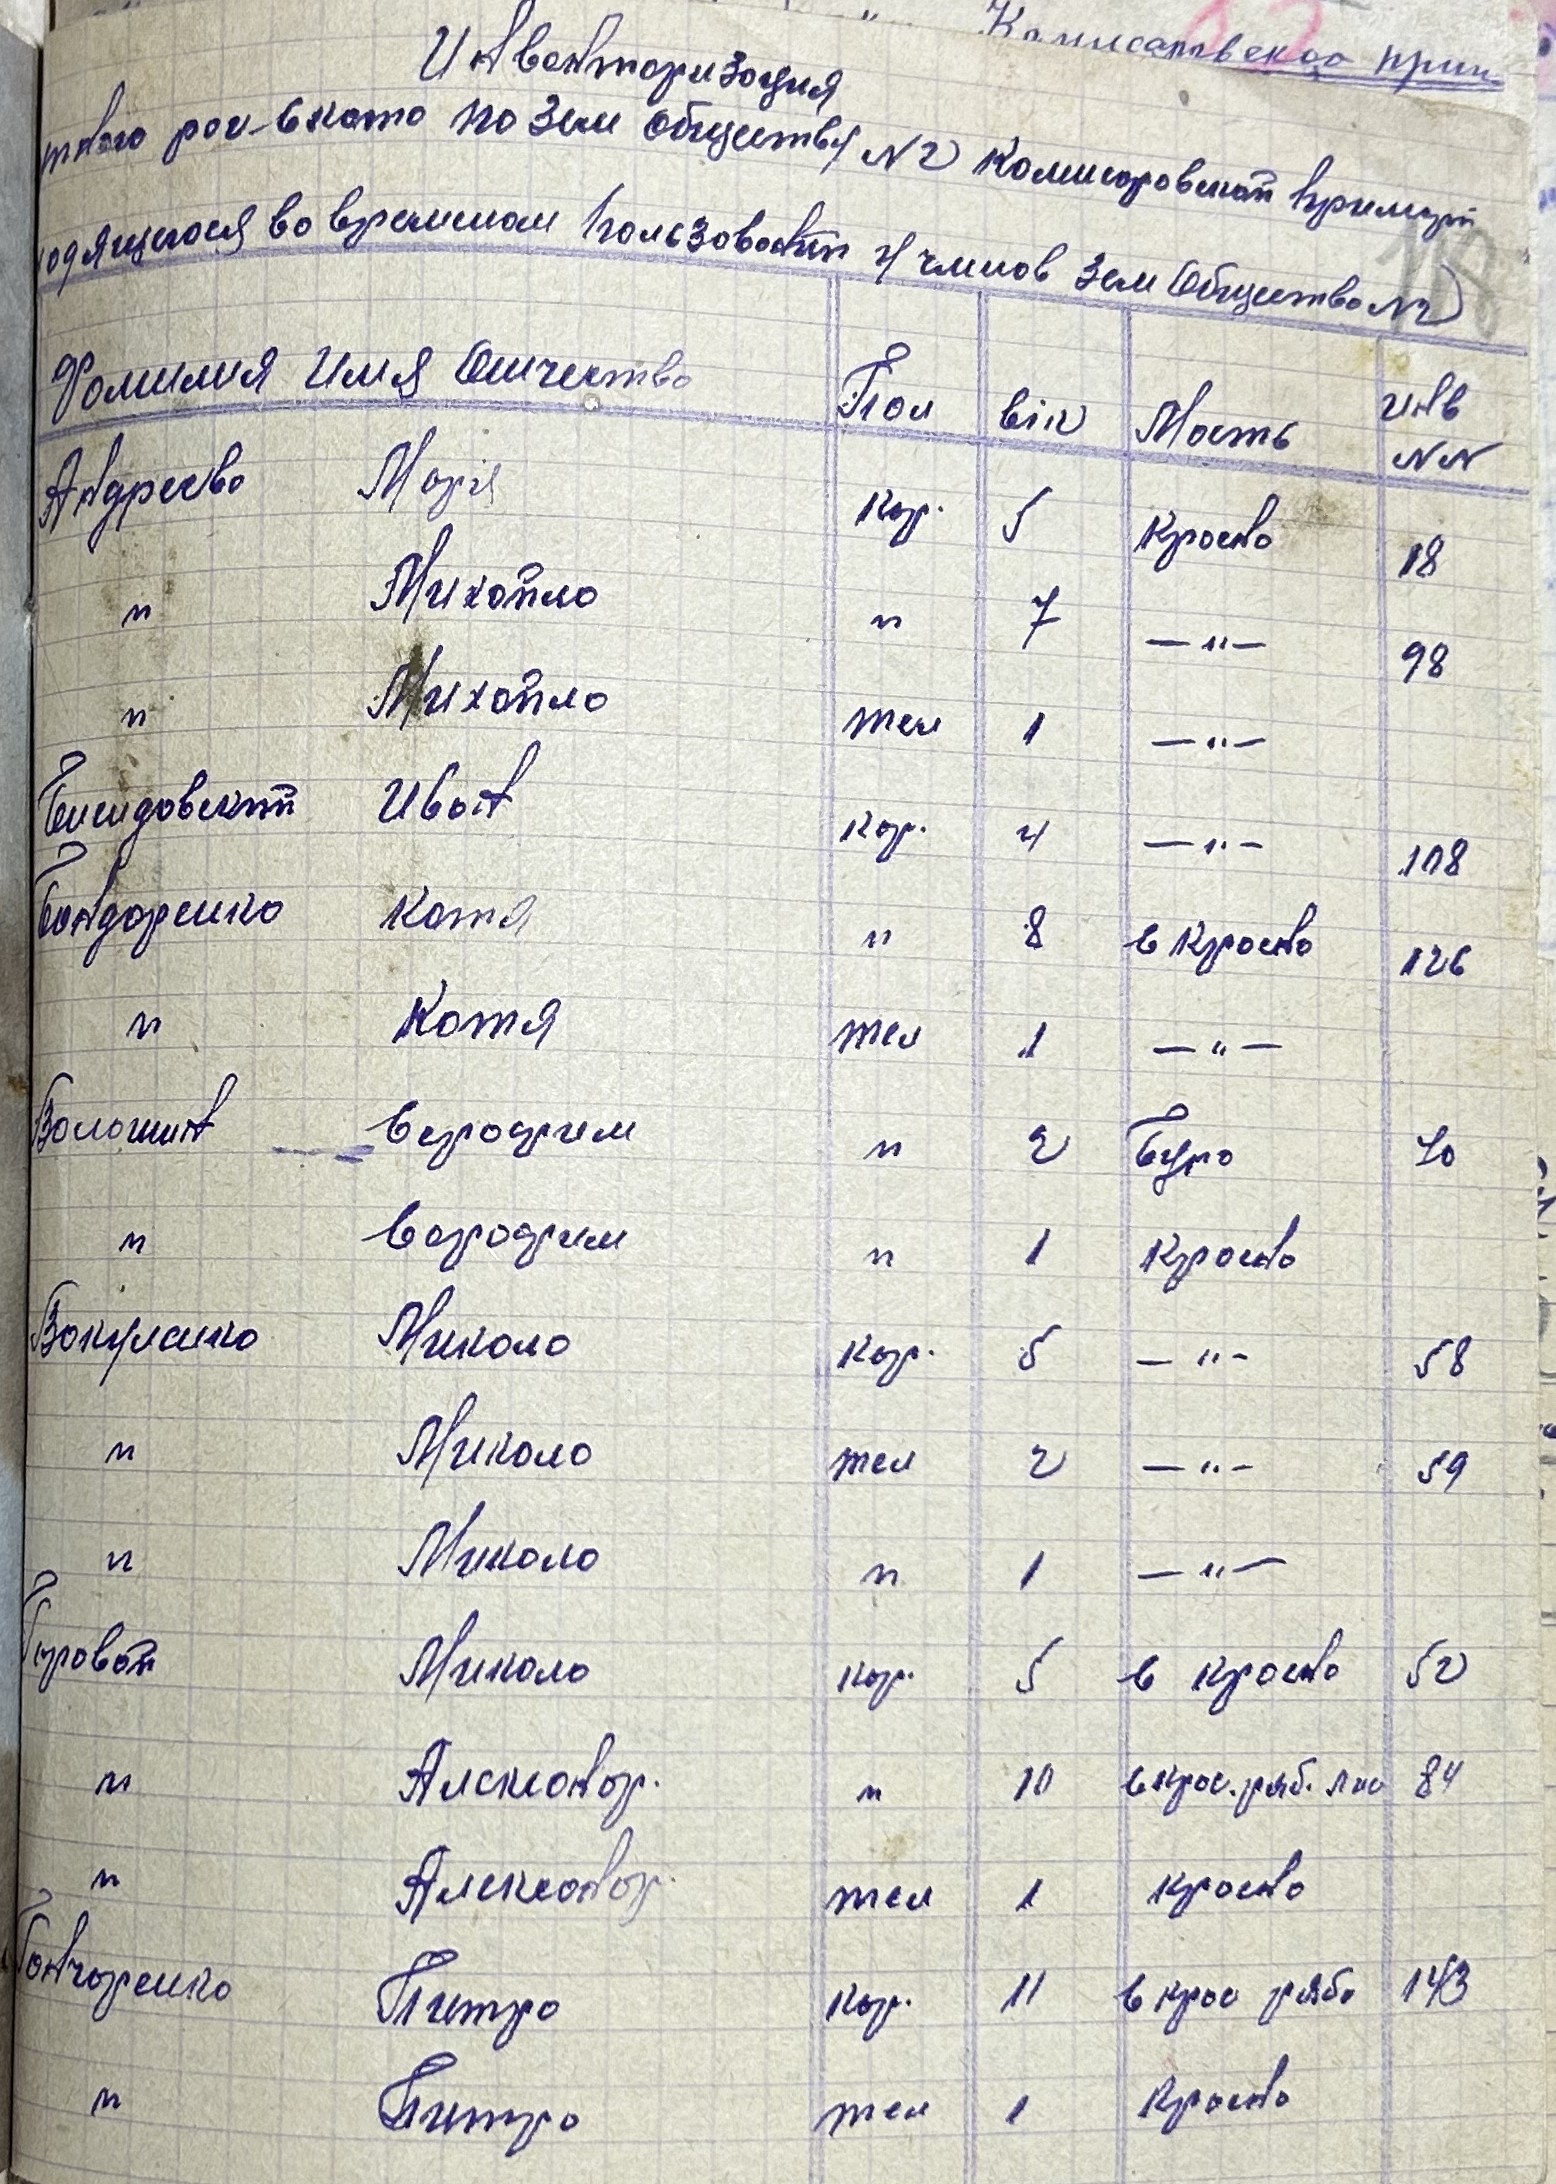 Комисаровской прим
Инвентаризация
рог-скота по Зем обществу N2 Комисаровской
во временом пользовании у членов Зем Общество N2
Фомилия Имя Отчество Пол вік Мость инв NN
Андреева Марія кор. 5 Красна 18
" Михайло " 7 —"— 98
" Михайло тел 1 —"—
Иван кор. 4 —"— 108
Бондаренко Котя " 8 в красна 126
" Котя тел 1 —"—
Волошин " 2 Бура 70
" " 1 Красна
Вакуленко Микола кор. 5 —"— 58
" Микола тел 2 —"— 59
" Микола " 1 —"—
Микола кор. 5 в красна 52
" Алексондр. " 10 в крас. ряб. 84
" Алексондр. тел 1 красна
Гончаренко Питро кор. 11 в крас ряба 143
" Питро тел 1 красна